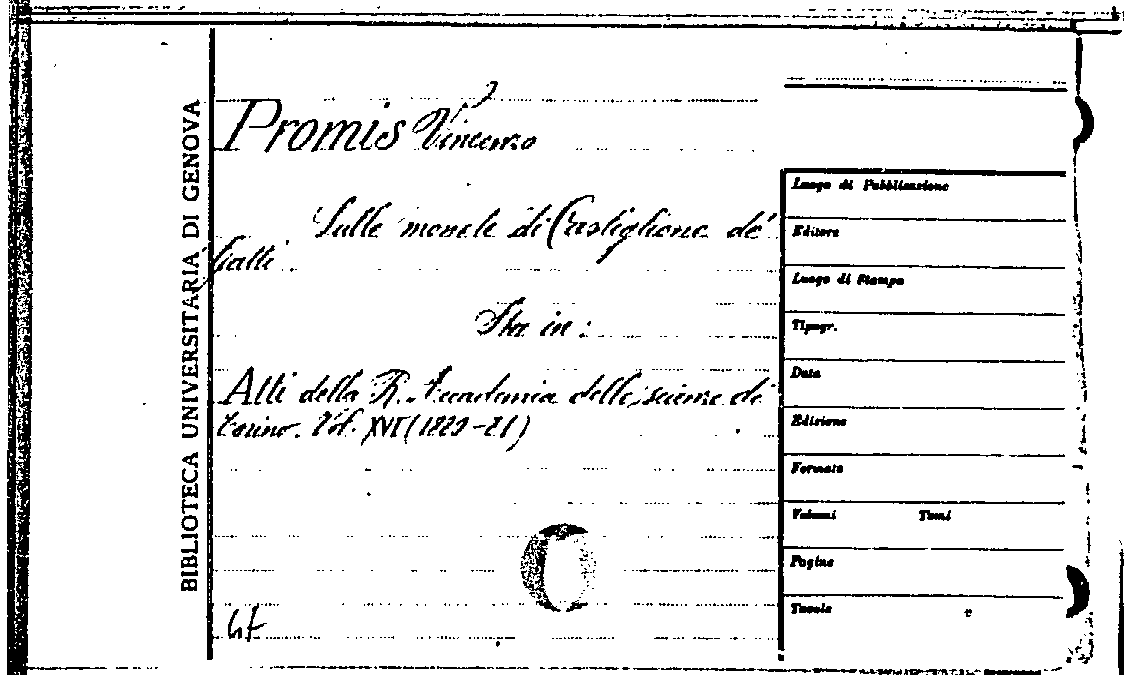 BIBLIOTECA UNIVERSITARIA DI GENOVA
Promis Vincenzo
Sulle monete di Castiglione de'
Gatti
Sta in:
Atti della R. Accademia delle scienze di
Torino. Vol. XVI (1880-81)
Luogo di Pubblicazione
Editore
Luogo di Stampa
Tipogr.
Data
Edizione
Formato
Volumi Tomi
Pagine
Tavole